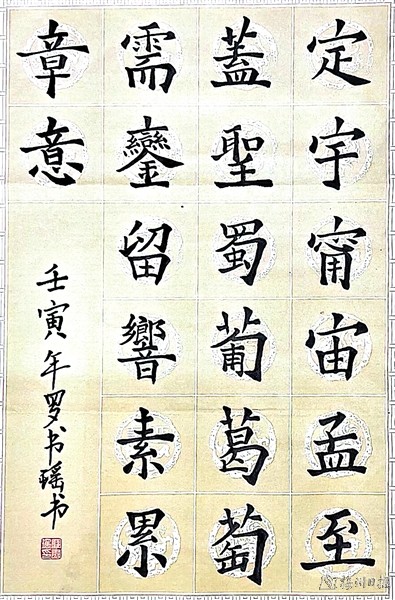 定宇甯宙孟至
蓋聖蜀葡葛萄
需鑾留響素累
章意
壬寅年罗书瑶书
梅州日报